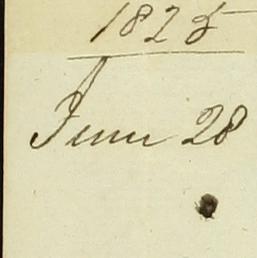 1825
June 28